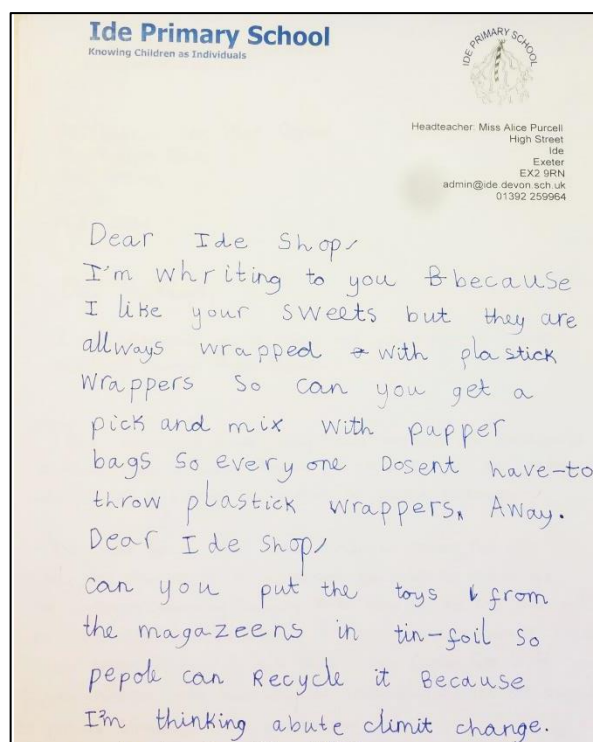 Ide Primary School
Knowing Children as Individuals
IDE PRIMARY SCHOOL
Headteacher: Miss Alice Purcell
High Street
Ide
Exeter
EX2 9RN
admin@ide.devon.sch.uk
01392 259964
Dear Ide Shop,
I'm whriting to you because
I like your sweets but they are
allways wrapped with plastick
wrappers so can you get a
pick and mix with papper
bags so every one Dosent have-to
throw plastick wrappers, Away.
Dear Ide shop,
can you put the toys from
the magazeens in tin-foil so
pepole can Recycle it Because
I'm thinking abute climit change.